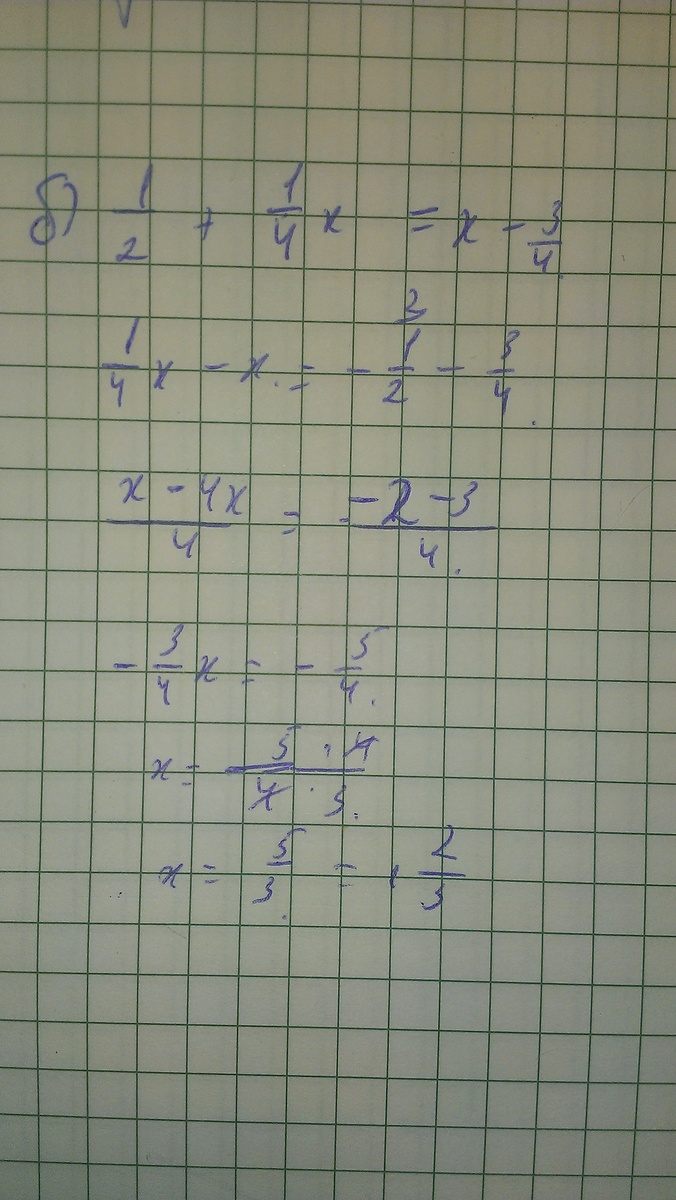 б) 1/2 + 1/4 x = x - 3/4
1/4 x - x = - 1/2 - 3/4
(x - 4x)/4 = (-2 - 3)/4
- 3/4 x = - 5/4
x = (5 · 4)/(4 · 3)
x = 5/3 = 1 2/3